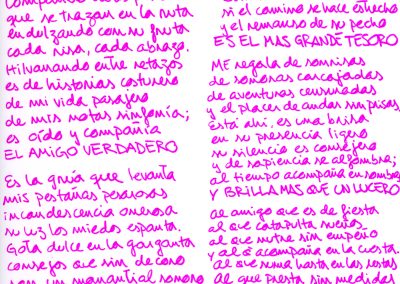 que se trazan en la ruta
endulzando con su fruta
cada risa, cada abrazo.
Hilvanando entre retazos
es de historias costurero
de mi vida pasajero
de mis notas sinfonía;
es oído y compañía
EL AMIGO VERDADERO
Es la grúa que levanta
mis pestañas pesarosas
incandescencia onerosa
su luz los miedos espanta.
Gota dulce en la garganta
consejos que sin decoro
son un manantial sonoro
si el camino se hace estrecho
y el remanso de su pecho
ES EL MAS GRANDE TESORO
ME regala de sonrisas
de sonoras carcajadas
de aventuras censuradas
y el placer de andar sin prisas
Está ahí, es una brisa
en su presencia ligero
su silencio es consejero
y de sapiencia se alfombra;
al tiempo acompaña en sombra
Y BRILLA MAS QUE UN LUCERO
al amigo que es de fiesta
al que catapulta sueños
al que nutre sin empeño
y al q acompaña en la cuesta.
al que suma hasta en las restas
al que presta sin medidas